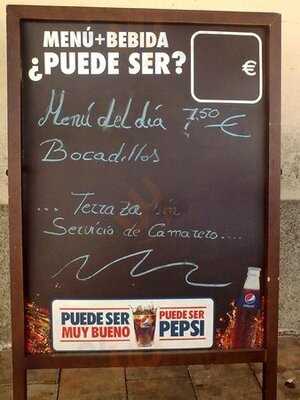 MENÚ+BEBIDA
¿PUEDE SER?
€
Menú del día 7,50 €
Bocadillos
... Terraza sin
Servicio de Camarero....
PUEDE SER
MUY BUENO
PUEDE SER
PEPSI
pepsi